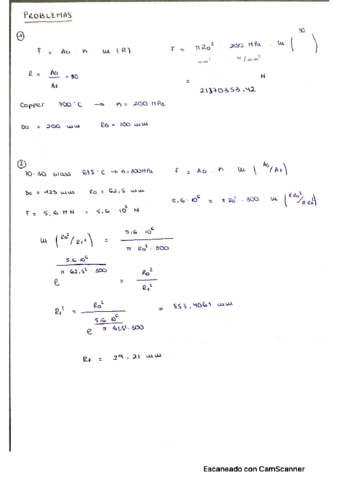 PROBLEMAS
1
F = A₀ · n ln (R)    F = πR₀² · 200 MPa · ln ( 30 )
mm²    N/mm²
R = A₀/Af = 30    =    N
21870353,42
Copper 900°C → n = 200 MPa
D₀ = 200 mm    R₀ = 100 mm
2
70-30 brass 675°C → n = 300MPa    F = A₀ · n ln ( A₀/Af )
D₀ = 125 mm    R₀ = 62,5 mm    5,6 · 10⁶ = πR₀² · 300 ln (πR₀²/πRf²)
F = 5,6 MN = 5,6 10⁶ N
ln (R₀²/Rf²) = 5,6 10⁶ / π R₀² · 300
e^(5,6 10⁶ / π 62,5² · 300) = R₀²/Rf²
Rf² = R₀² / e^(5,6 10⁶ / π 62,5² · 300) = 853,4061 mm
Rf = 29,21 mm
Escaneado con CamScanner